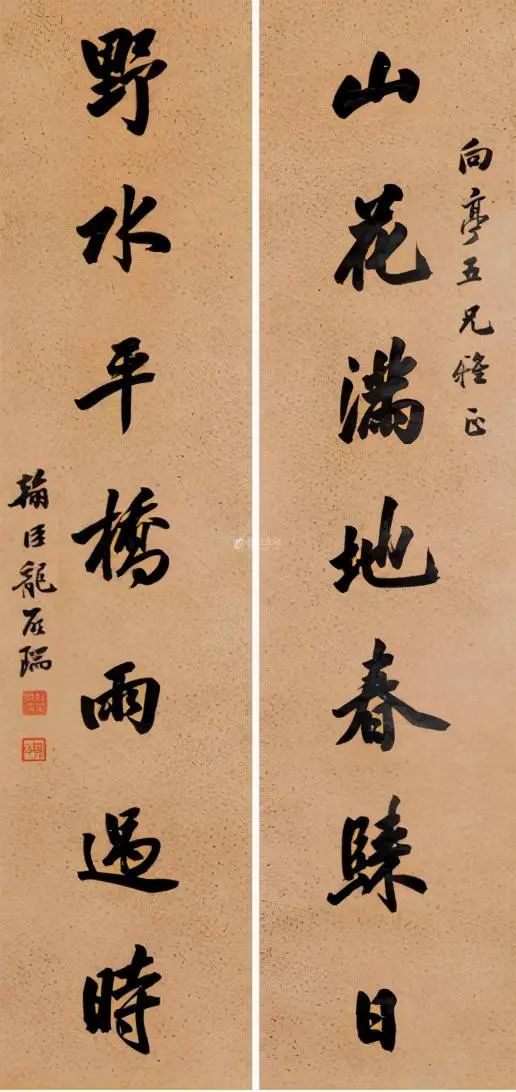 向亭五兄雅正
山花滿地春歸日
野水平橋雨過時
翰臣龍启瑞